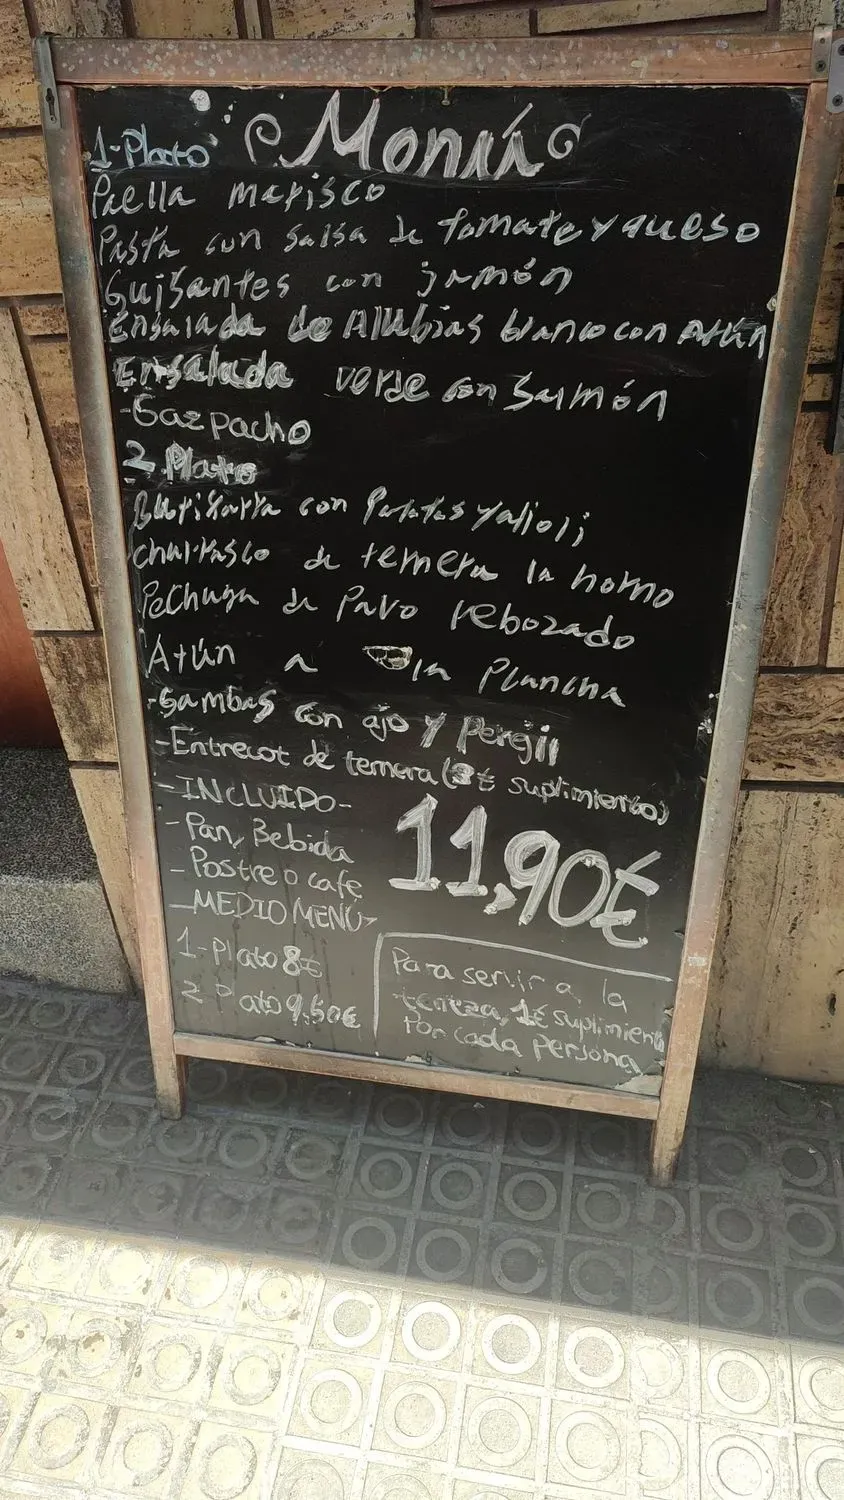 Menú
1-Plato
Paella marisco
Pasta con salsa de tomate y queso
Guisantes con jamón
Ensalada de Alubias blanco con Atún
Ensalada verde con Salmón
-Gazpacho
2 Plato
Butifarra con Patatas y alioli
churrasco de ternera la horno
Pechuga de Pavo rebozado
Atún a la Plancha
-Gambas con ajo y Peregil
-Entrecot de ternera (3€ suplimiento)
-INCLUIDO-
- Pan, Bebida
- Postre o cafe
11,90€
-MEDIO MENÚ-
1-Plato 8€
2 Plato 9,50€
Para servir a la
terreza, 1€ suplimiento
Por cada persona